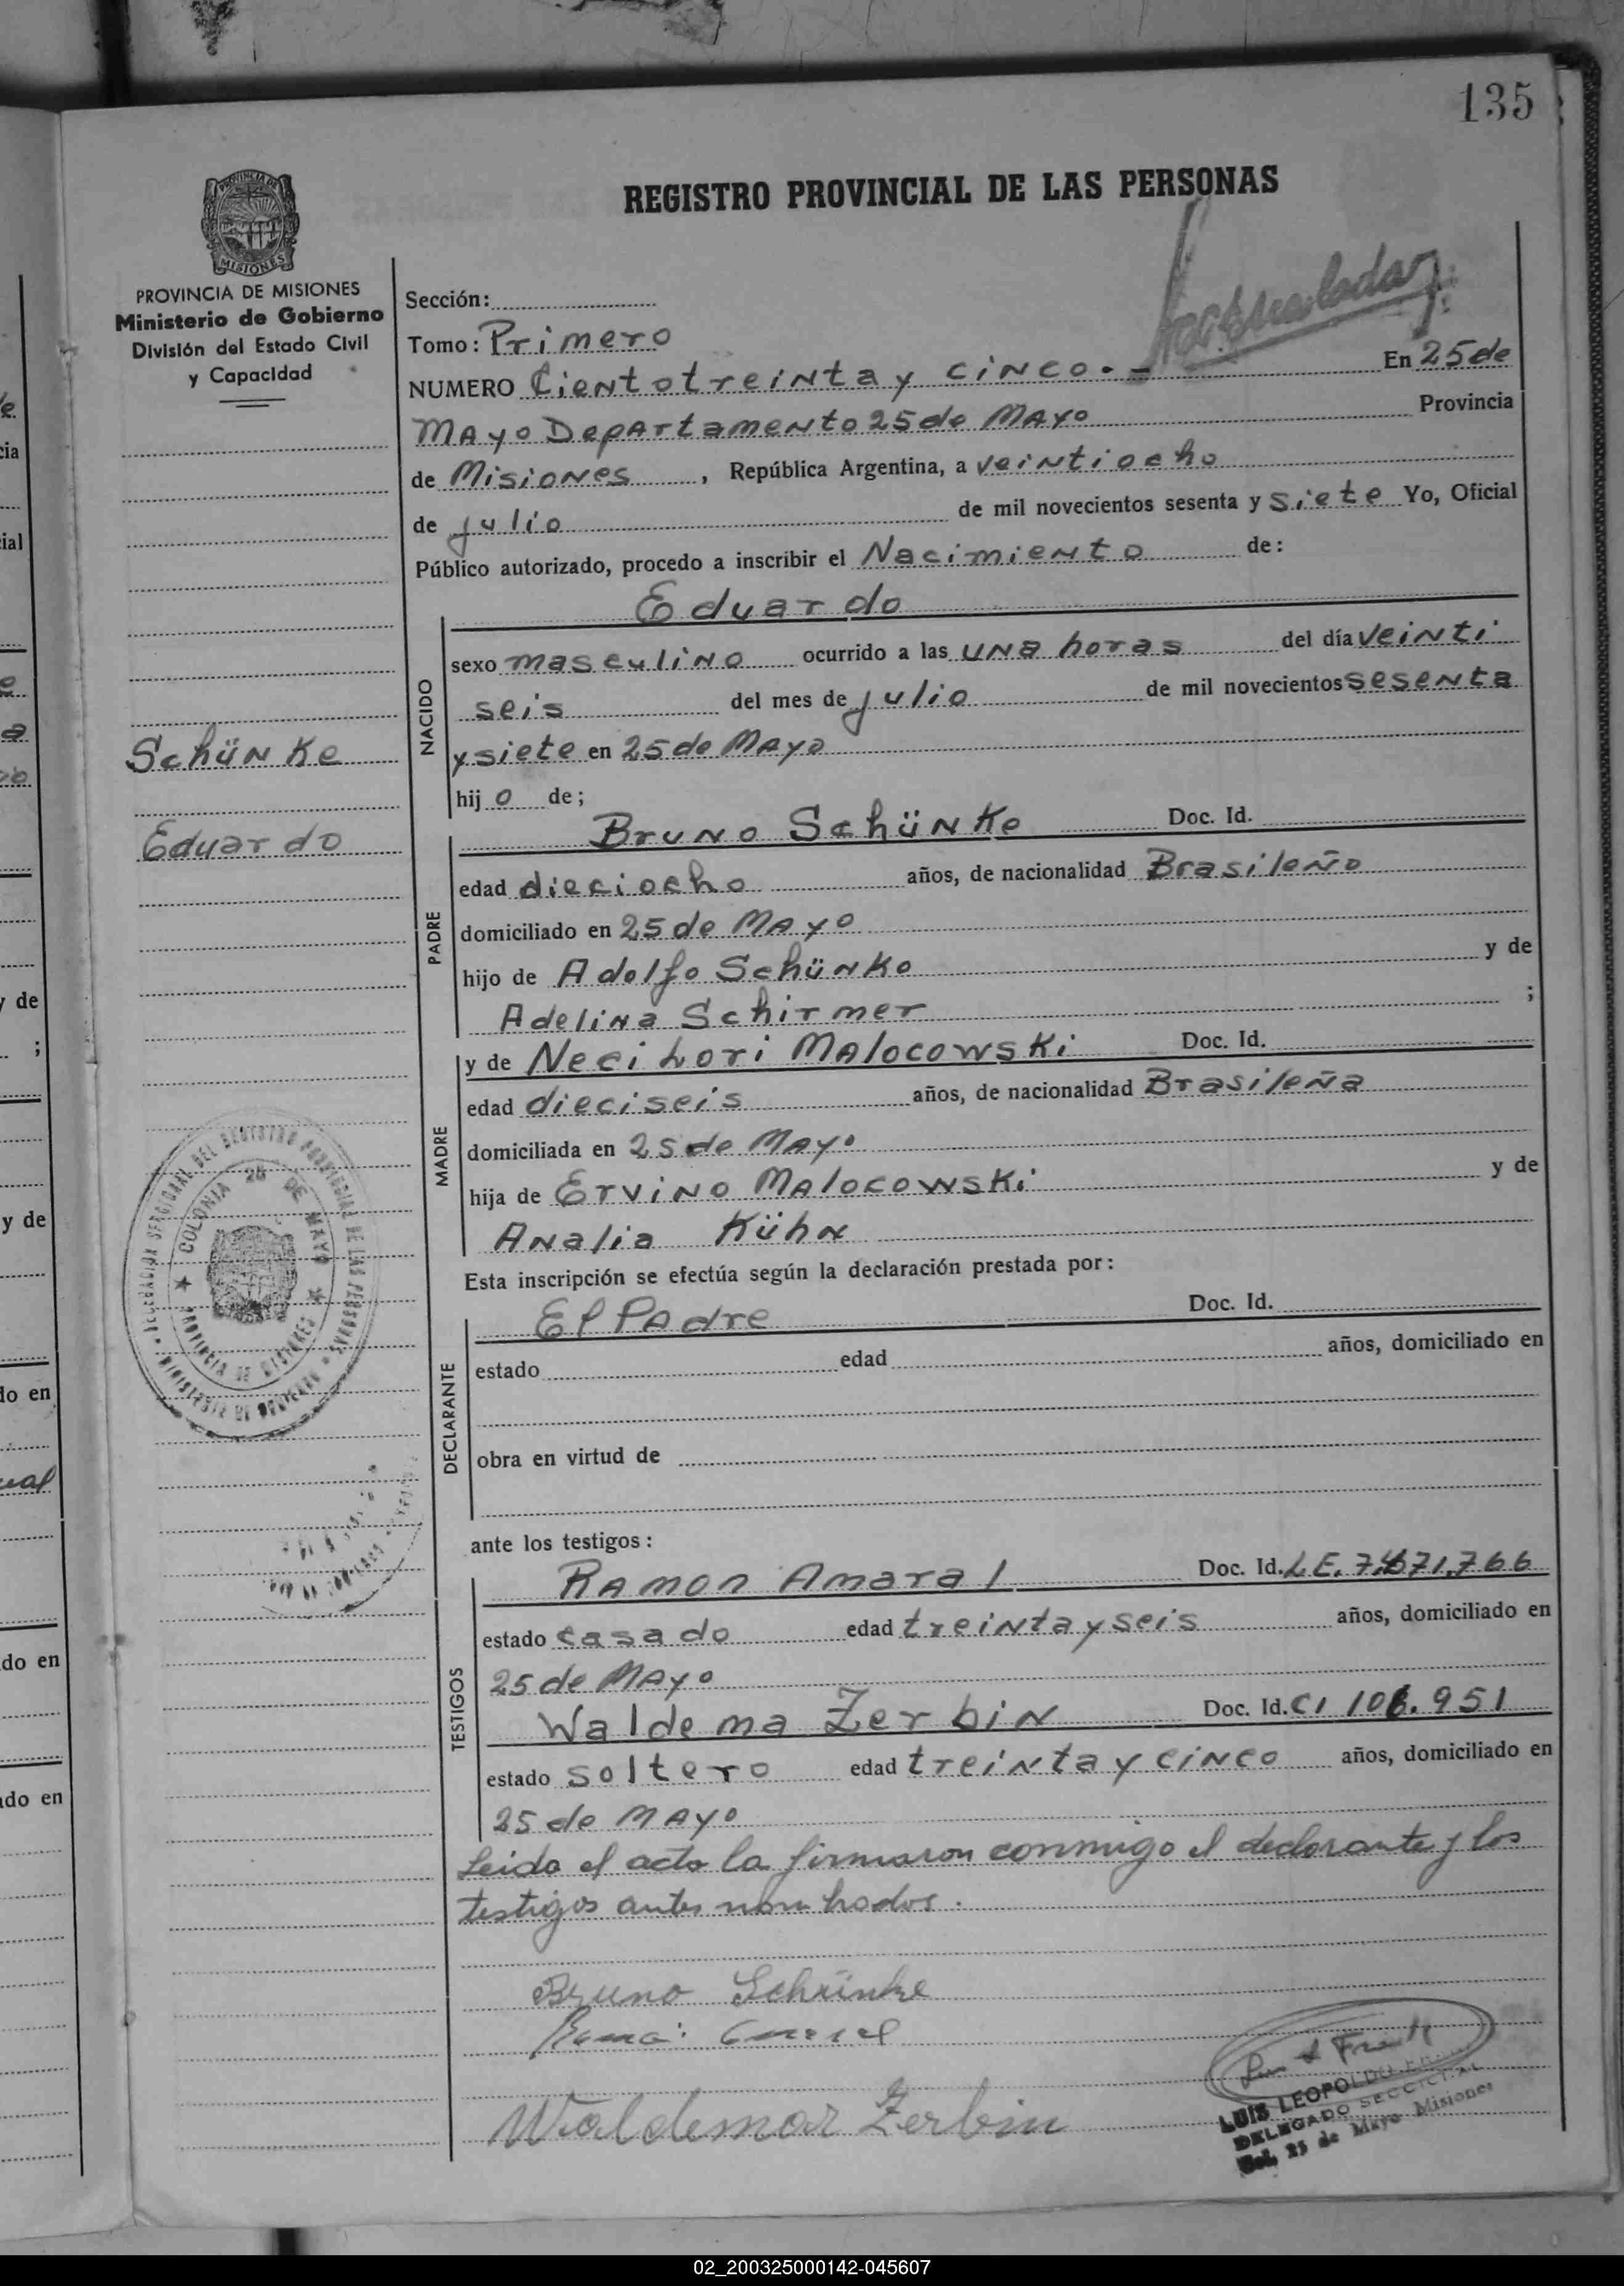 135
REGISTRO PROVINCIAL DE LAS PERSONAS
MISIONES
PROVINCIA DE MISIONES
Ministerio de Gobierno
División del Estado Civil
y Capacidad
Schünke
Eduardo
COLONIA 25 DE MAYO
PROVINCIA DE MISIONES
Sección:
Tomo: Primero
NUMERO Ciento treinta y cinco.- En 25 de
Mayo Departamento 25 de Mayo Provincia
de Misiones, República Argentina, a veintiocho
de julio de mil novecientos sesenta y siete Yo, Oficial
Público autorizado, procedo a inscribir el Nacimiento de:
Eduardo
NACIDO
sexo masculino ocurrido a las una horas del día veinti
seis del mes de julio de mil novecientos sesenta
y siete en 25 de Mayo
hijo de;
PADRE
Bruno Schünke Doc. Id.
edad dieciocho años, de nacionalidad Brasileño
domiciliado en 25 de Mayo
hijo de Adolfo Schünke y de
Adelina Schirmer ;
MADRE
y de Neci Lori Malocowski Doc. Id.
edad dieciseis años, de nacionalidad Brasileña
domiciliada en 25 de Mayo
hija de Ervino Malocowski y de
Analia Kühn
Esta inscripción se efectúa según la declaración prestada por:
DECLARANTE
El Padre Doc. Id.
estado edad años, domiciliado en
obra en virtud de
ante los testigos:
TESTIGOS
Ramon Amaral Doc. Id. LE. 7.671.766
estado casado edad treinta y seis años, domiciliado en
25 de Mayo
Waldema Zerbin Doc. Id. CI 106.951
estado soltero edad treinta y cinco años, domiciliado en
25 de Mayo
Leida el acta la firmaron conmigo el declarante y los
testigos antes nombrados.
Bruno Schünke
Waldemar Zerbin
LUIS LEOPOLDO
DELEGADO SECCIONAL
Col. 25 de Mayo Misiones
02_200325000142-045607